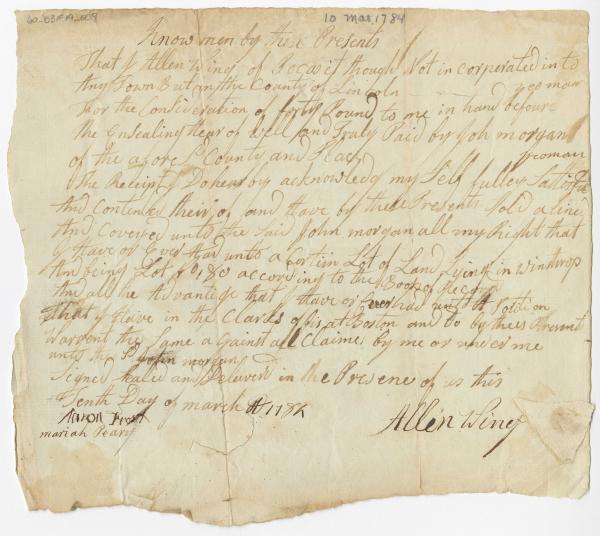 60.831.19.008
10 Mar 1784
Know men by these Presents
That I Allen Wing of Pocasit though Not in corperated into
Any Town But in the County of Lincoln yeoman
For the Consideration of forty Pound to me in hand befoure
the Ensealing Hear of well and Truly Paid by Joh morgan
of the afore Sd County and Place yeoman
The Receipt I Do hearby acknowledg my Self fulley Sattisfied
And Contented their of and Have by these Presents Sold alined
And Coveyed unto the Said John morgan all my Right that
I Have or Ever Had unto a Certin Lot of Land Lying in Winthrop
And being Lot No 180 according to the Book of Record
And all the Advantige that I Have or Ever had unto A Potition
that I Have in the Clarks offis at Boston and Do by theis Present
Warrent the Same a Gainst all Claims by me or under me
unto the Sd John morgan
Signed Sealed and Deliverd in the Presene of us this
Tenth Day of march AD 1784
Allen Wing
mariah Pearis